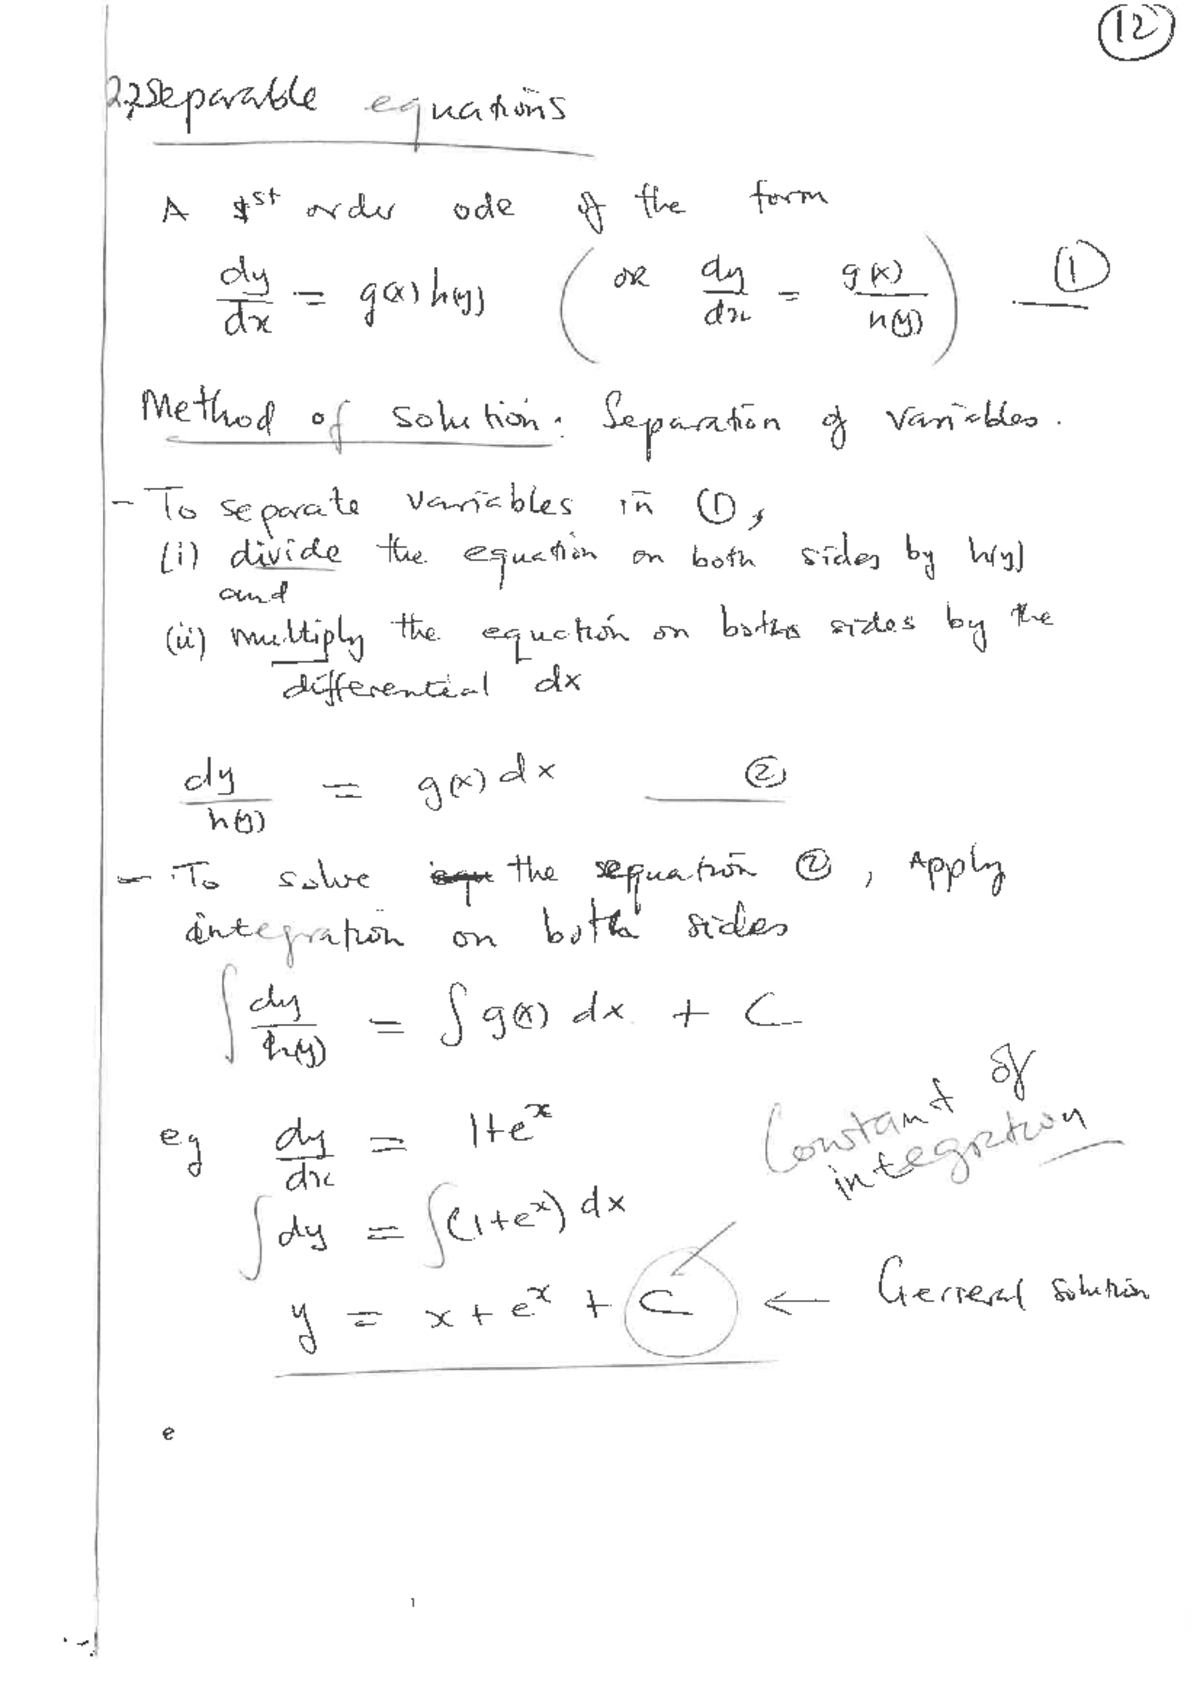 12
2.2 Separable equations
A 1st order ode of the form
dy/dx = g(x) h(y) (or dy/dx = g(x)/h(y)) ①
Method of solution: Separation of variables.
- To separate variables in ①,
(i) divide the equation on both sides by h(y)
and
(ii) multiply the equation on both sides by the
differential dx
dy/h(y) = g(x) dx ②
- To solve the equation ②, Apply
integration on both sides
∫ dy/h(y) = ∫ g(x) dx + C
Constant of
integration
eg dy/dx = 1+e^x
∫ dy = ∫(1+e^x) dx
y = x + e^x + C ← General solution
e
1